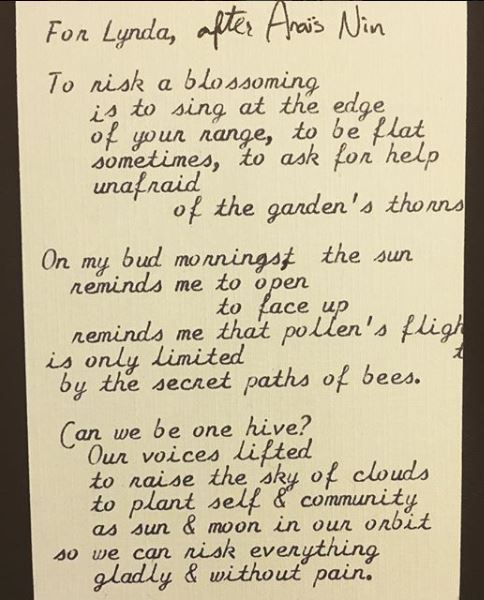 For Lynda, after Anaïs Nin
To risk a blossoming
is to sing at the edge
of your range, to be flat
sometimes, to ask for help
unafraid
of the garden's thorns
On my bud mornings, the sun
reminds me to open
to face up
reminds me that pollen's fligh
t
is only limited
by the secret paths of bees.
Can we be one hive?
Our voices lifted
to raise the sky of clouds
to plant self & community
as sun & moon in our orbit
so we can risk everything
gladly & without pain.